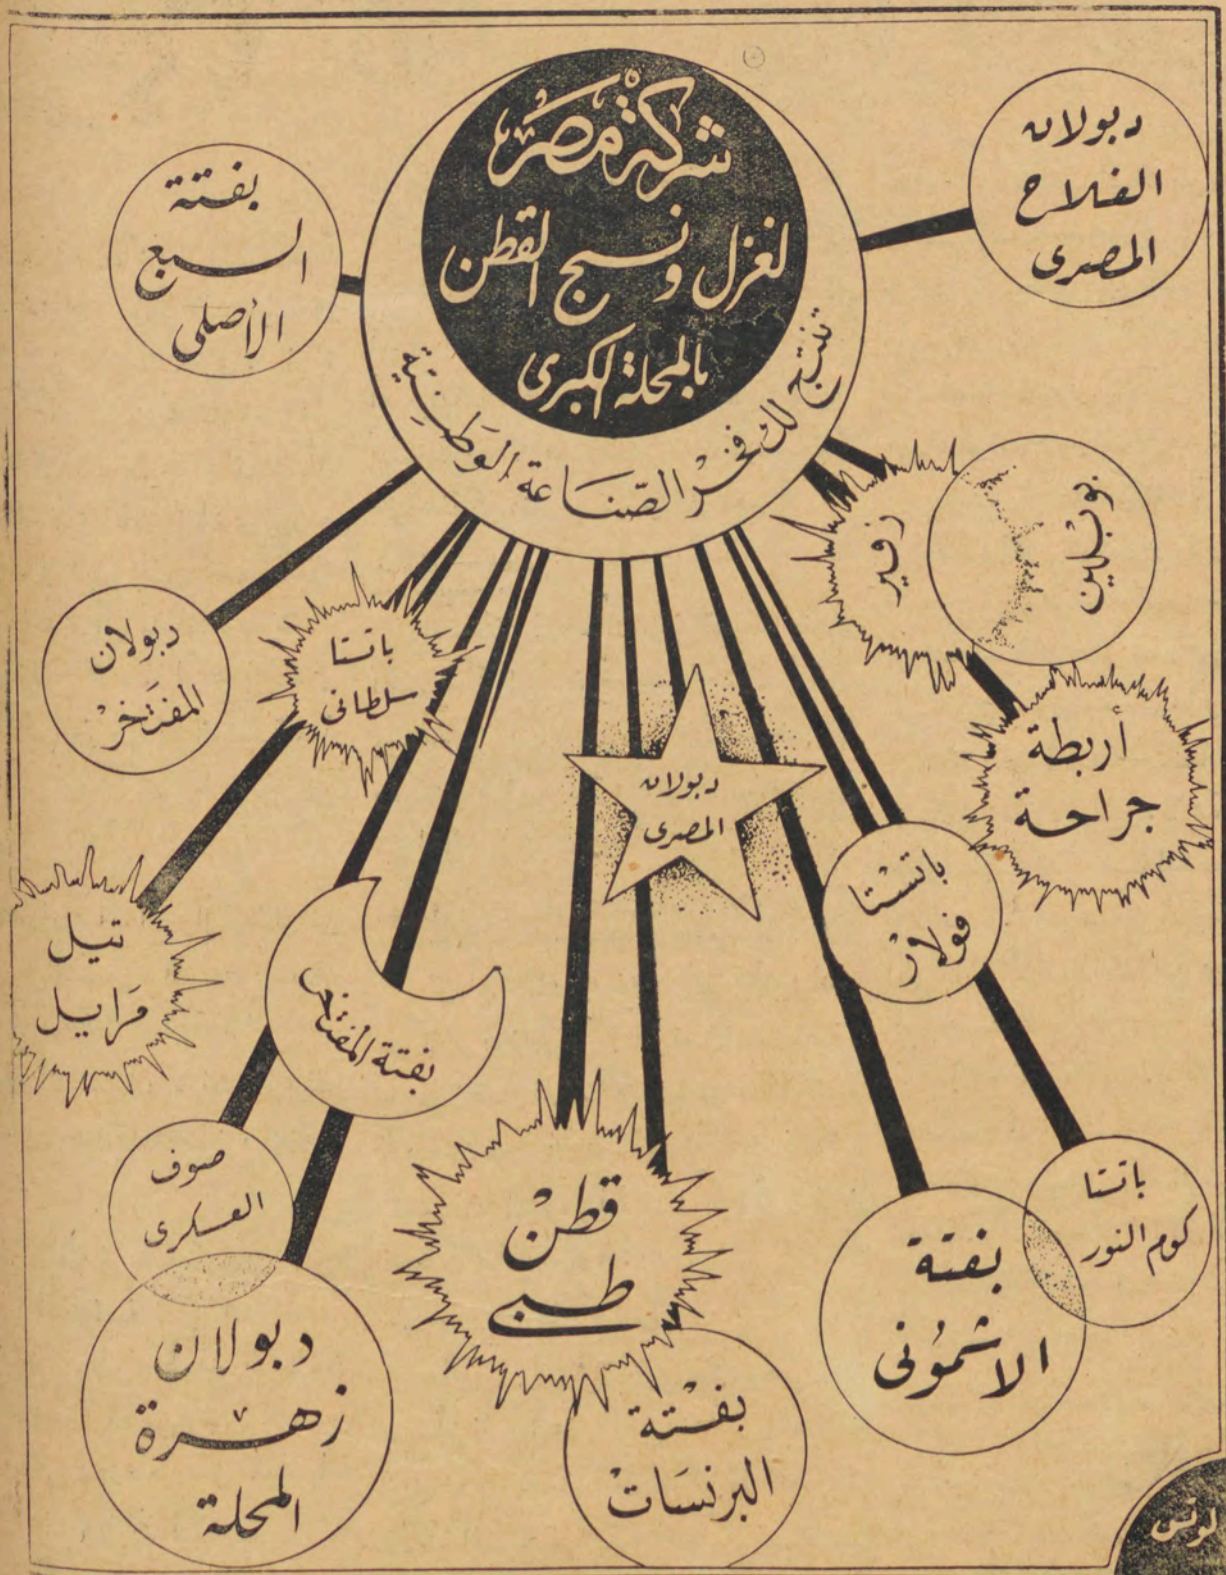 شركة مصر
لغزل ونسج القطن
بالمحلة الكبرى
تنتج لك فخر الصناعة الوطنية
دبولان
الفلاح
المصرى
بفتة
السبع
الأصلى
بوبلين
زفير
أربطة
جراحة
باتستا
سلطانى
دبولان
المفتخر
دبولان
المصرى
باتستا
فولار
تيل
مرايل
بفتة المفتخر
صوف
العسكرى
باتستا
كوم النور
قطن
طبى
بفتة
الاشمونى
دبولان
زهرة
المحلة
بفتة
البرنسات
لوتس